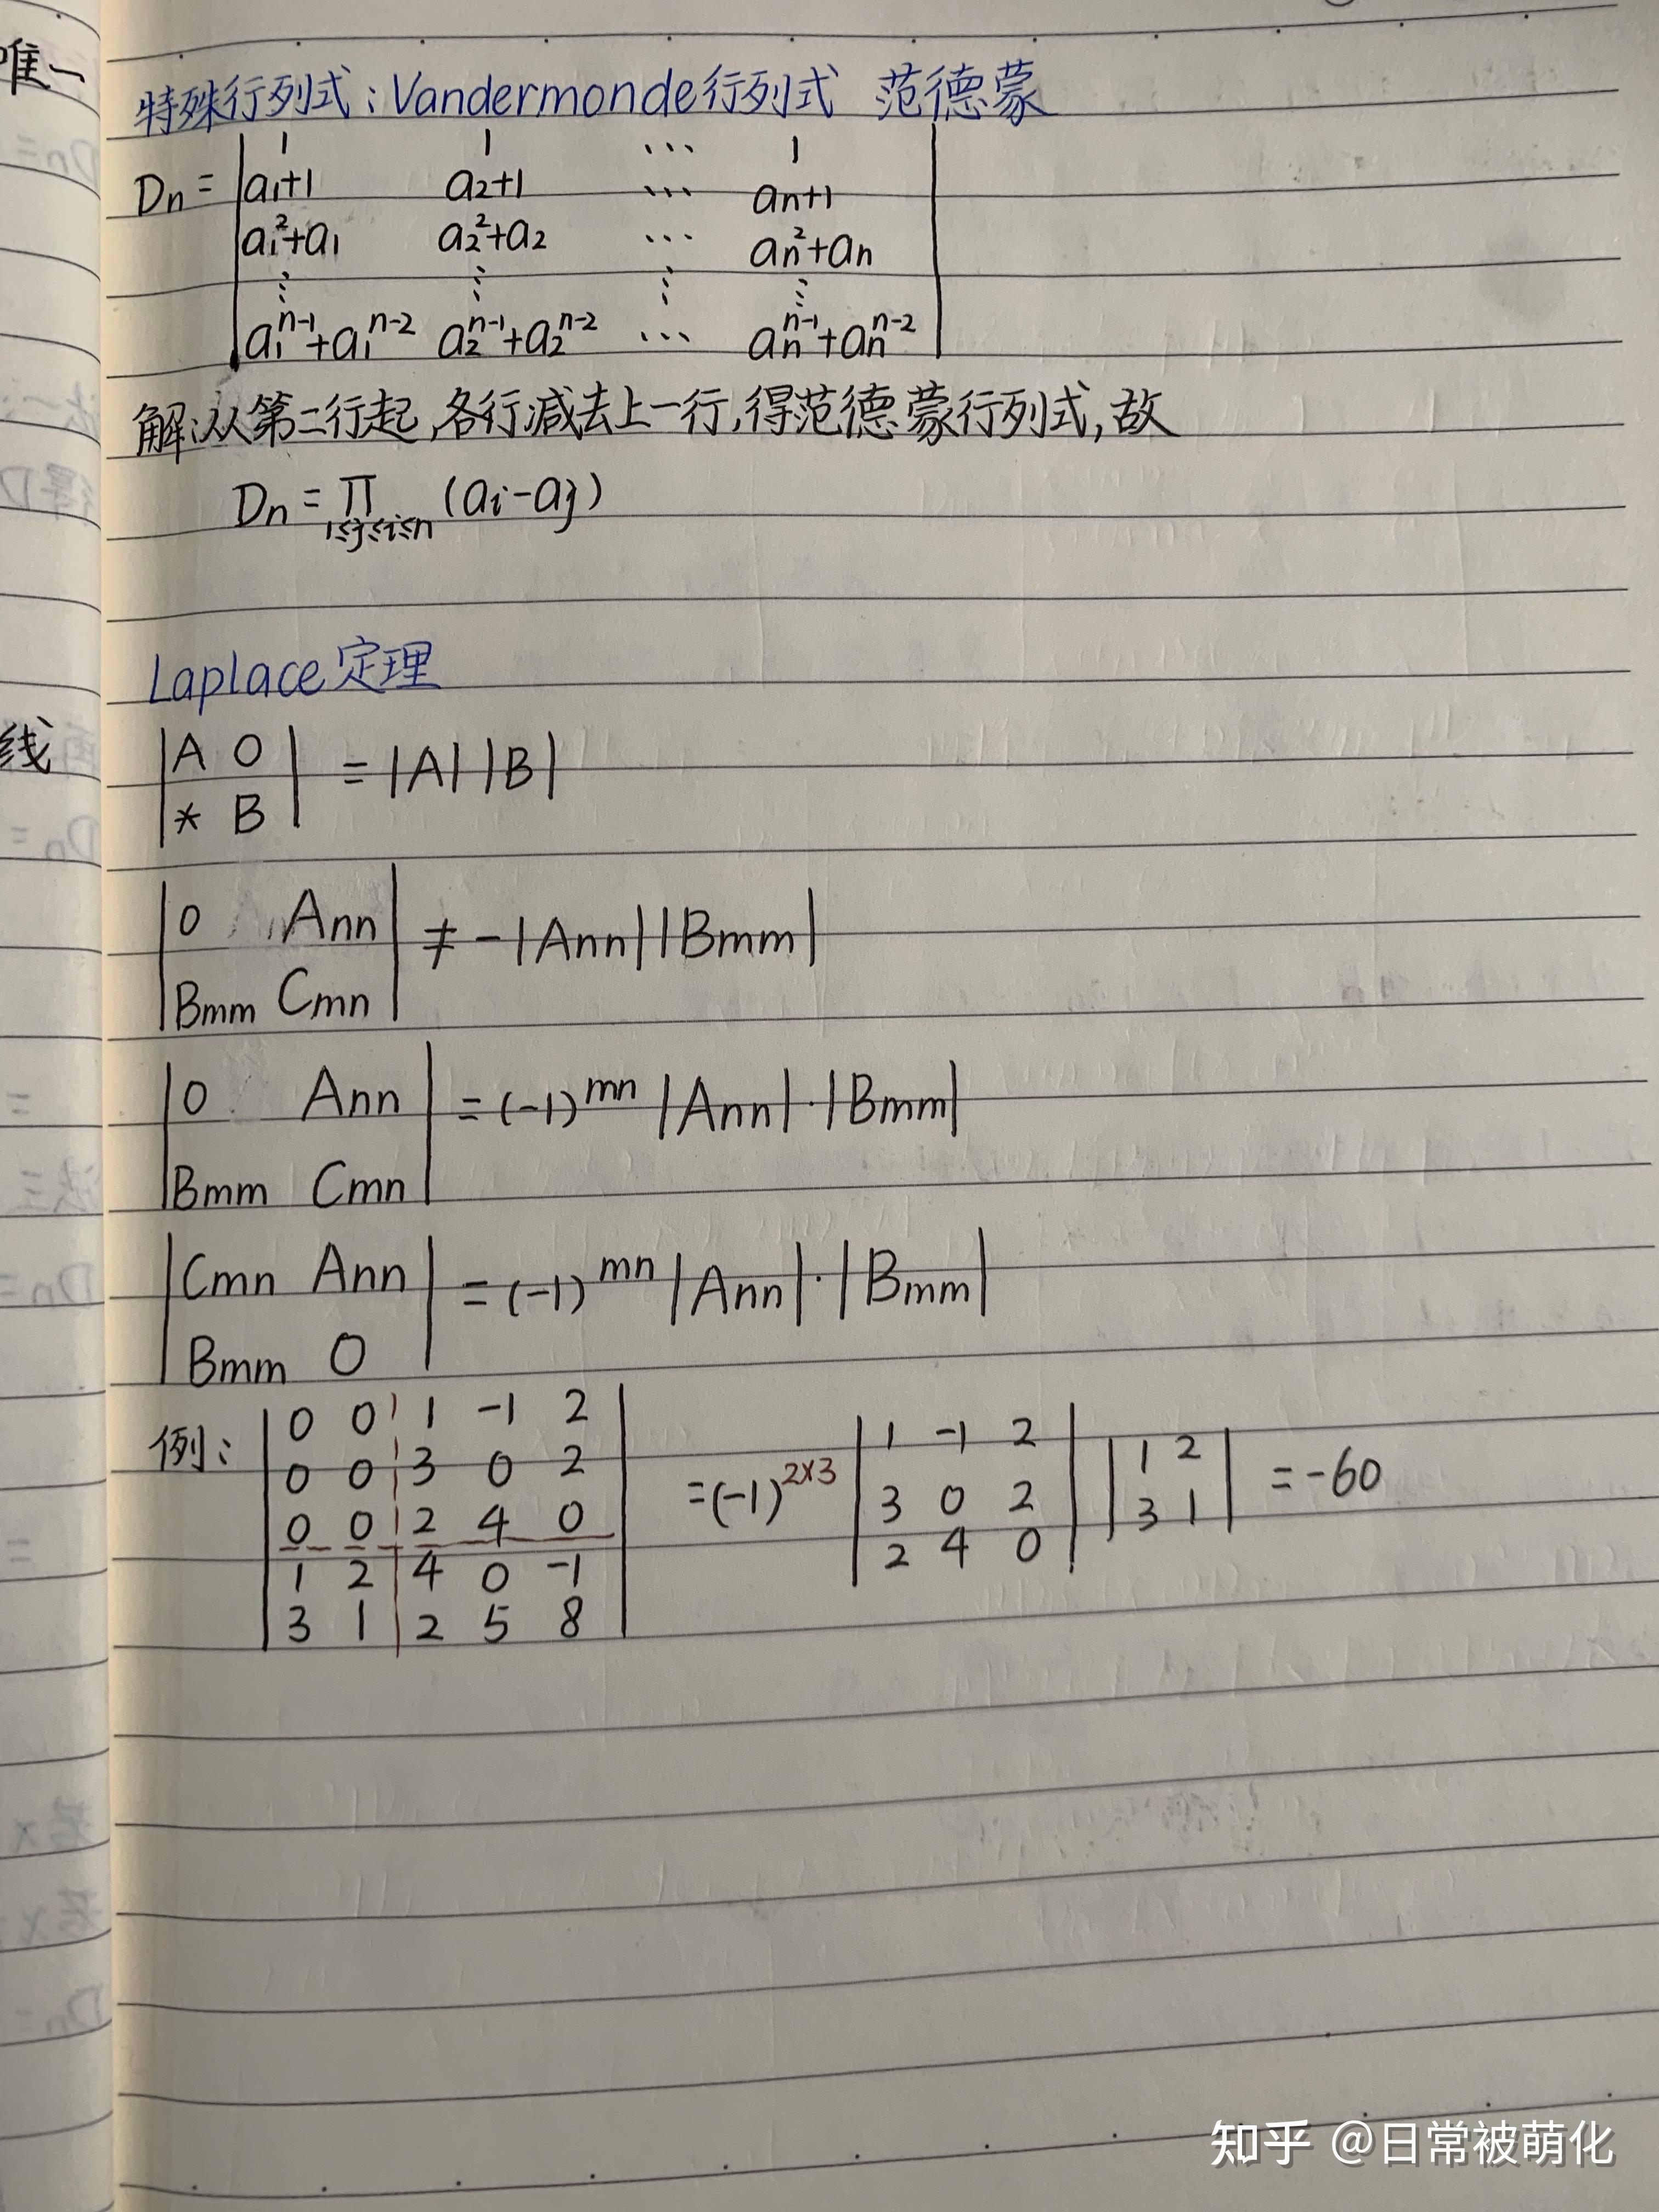 唯一
线
特殊行列式:Vandermonde行列式 范德蒙
Dn = | 1 1 ⋯ 1 |
| a₁+1 a₂+1 ⋯ aₙ+1 |
| a₁²+a₁ a₂²+a₂ ⋯ aₙ²+aₙ |
| ⋮ ⋮ ⋮ ⋮ |
| a₁ⁿ⁻¹+a₁ⁿ⁻² a₂ⁿ⁻¹+a₂ⁿ⁻² ⋯ aₙⁿ⁻¹+aₙⁿ⁻² |
解:从第二行起,各行减去上一行,得范德蒙行列式,故
Dn = ∏ (ai-aj)
1≤j≤i≤n
Laplace定理
| A O | = |A| |B|
| * B |
| 0 Ann | ≠ -|Ann| |Bmm|
| Bmm Cmn |
| 0 Ann | = (-1)^mn |Ann|·|Bmm|
| Bmm Cmn |
| Cmn Ann | = (-1)^mn |Ann|·|Bmm|
| Bmm O |
例: | 0 0 1 -1 2 |
| 0 0 3 0 2 |
| 0 0 2 4 0 |
| 1 2 4 0 -1 |
| 3 1 2 5 8 |
=(-1)^2×3 | 1 -1 2 | | 1 2 | = -60
| 3 0 2 | | 3 1 |
| 2 4 0 |
知乎 @日常被萌化